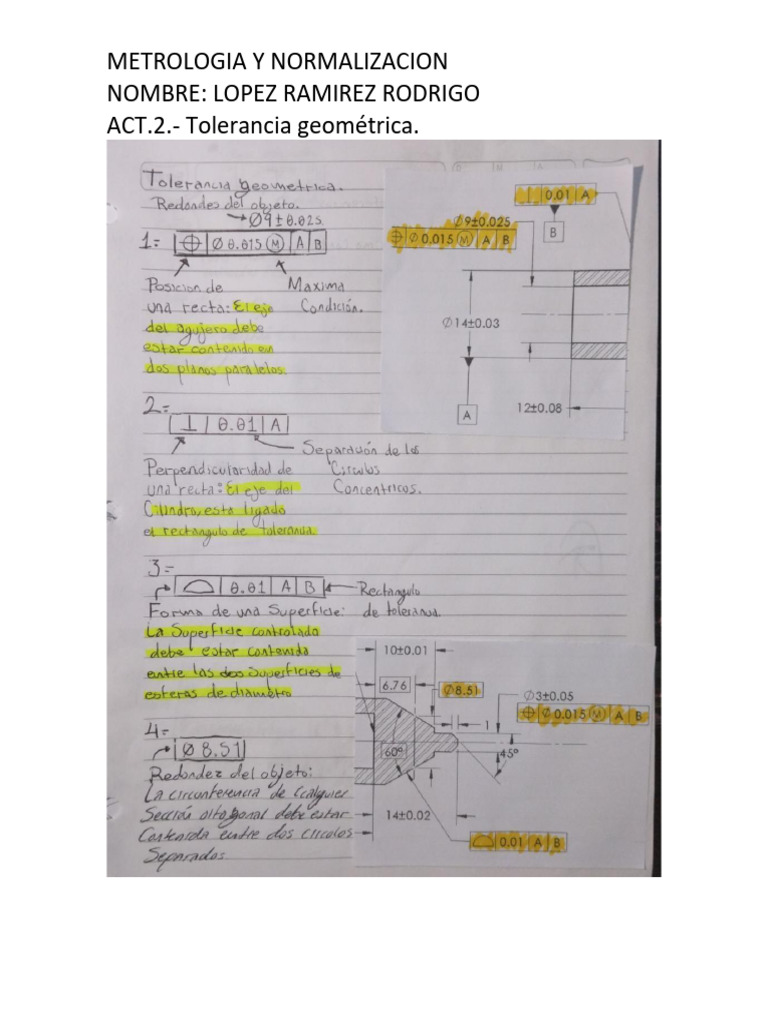 METROLOGIA Y NORMALIZACION
NOMBRE: LOPEZ RAMIREZ RODRIGO
ACT.2.- Tolerancia geométrica.
Tolerancia geometrica.
Redondes del objeto.
Ø9±0.025.
1= ⌖ Ø 0.015 Ⓜ A B
Posicion de
una recta: El eje
del agujero debe
estar contenido en
dos planos paralelos.
Maxima
Condición.
2=
⊥ 0.01 A
Perpendicularidad de
una recta: El eje del
Cilindro, esta ligado
el rectangulo de tolerancia.
Separación de los
Circulos
Concentricos.
3=
⌓ 0.01 A B
Rectangulo
de tolerancia
Forma de una Superficie:
La Superficie controlada
debe estar contenida
entre las dos Superficies de
esferas de diametro
4=
Ø 8.51
Redondez del objeto:
La circunferencia de Cualquier
Sección oltogonal debe estar
Contenida entre dos circulos
Separados
⊥ 0.01 A
Ø9±0.025
⌖ Ø 0.015 Ⓜ A B
B
Ø14±0.03
A
12±0.08
10±0.01
6.76
Ø8.51
Ø3±0.05
⌖ Ø 0.015 Ⓜ A B
1
60º
45º
14±0.02
⌓ 0.01 A B